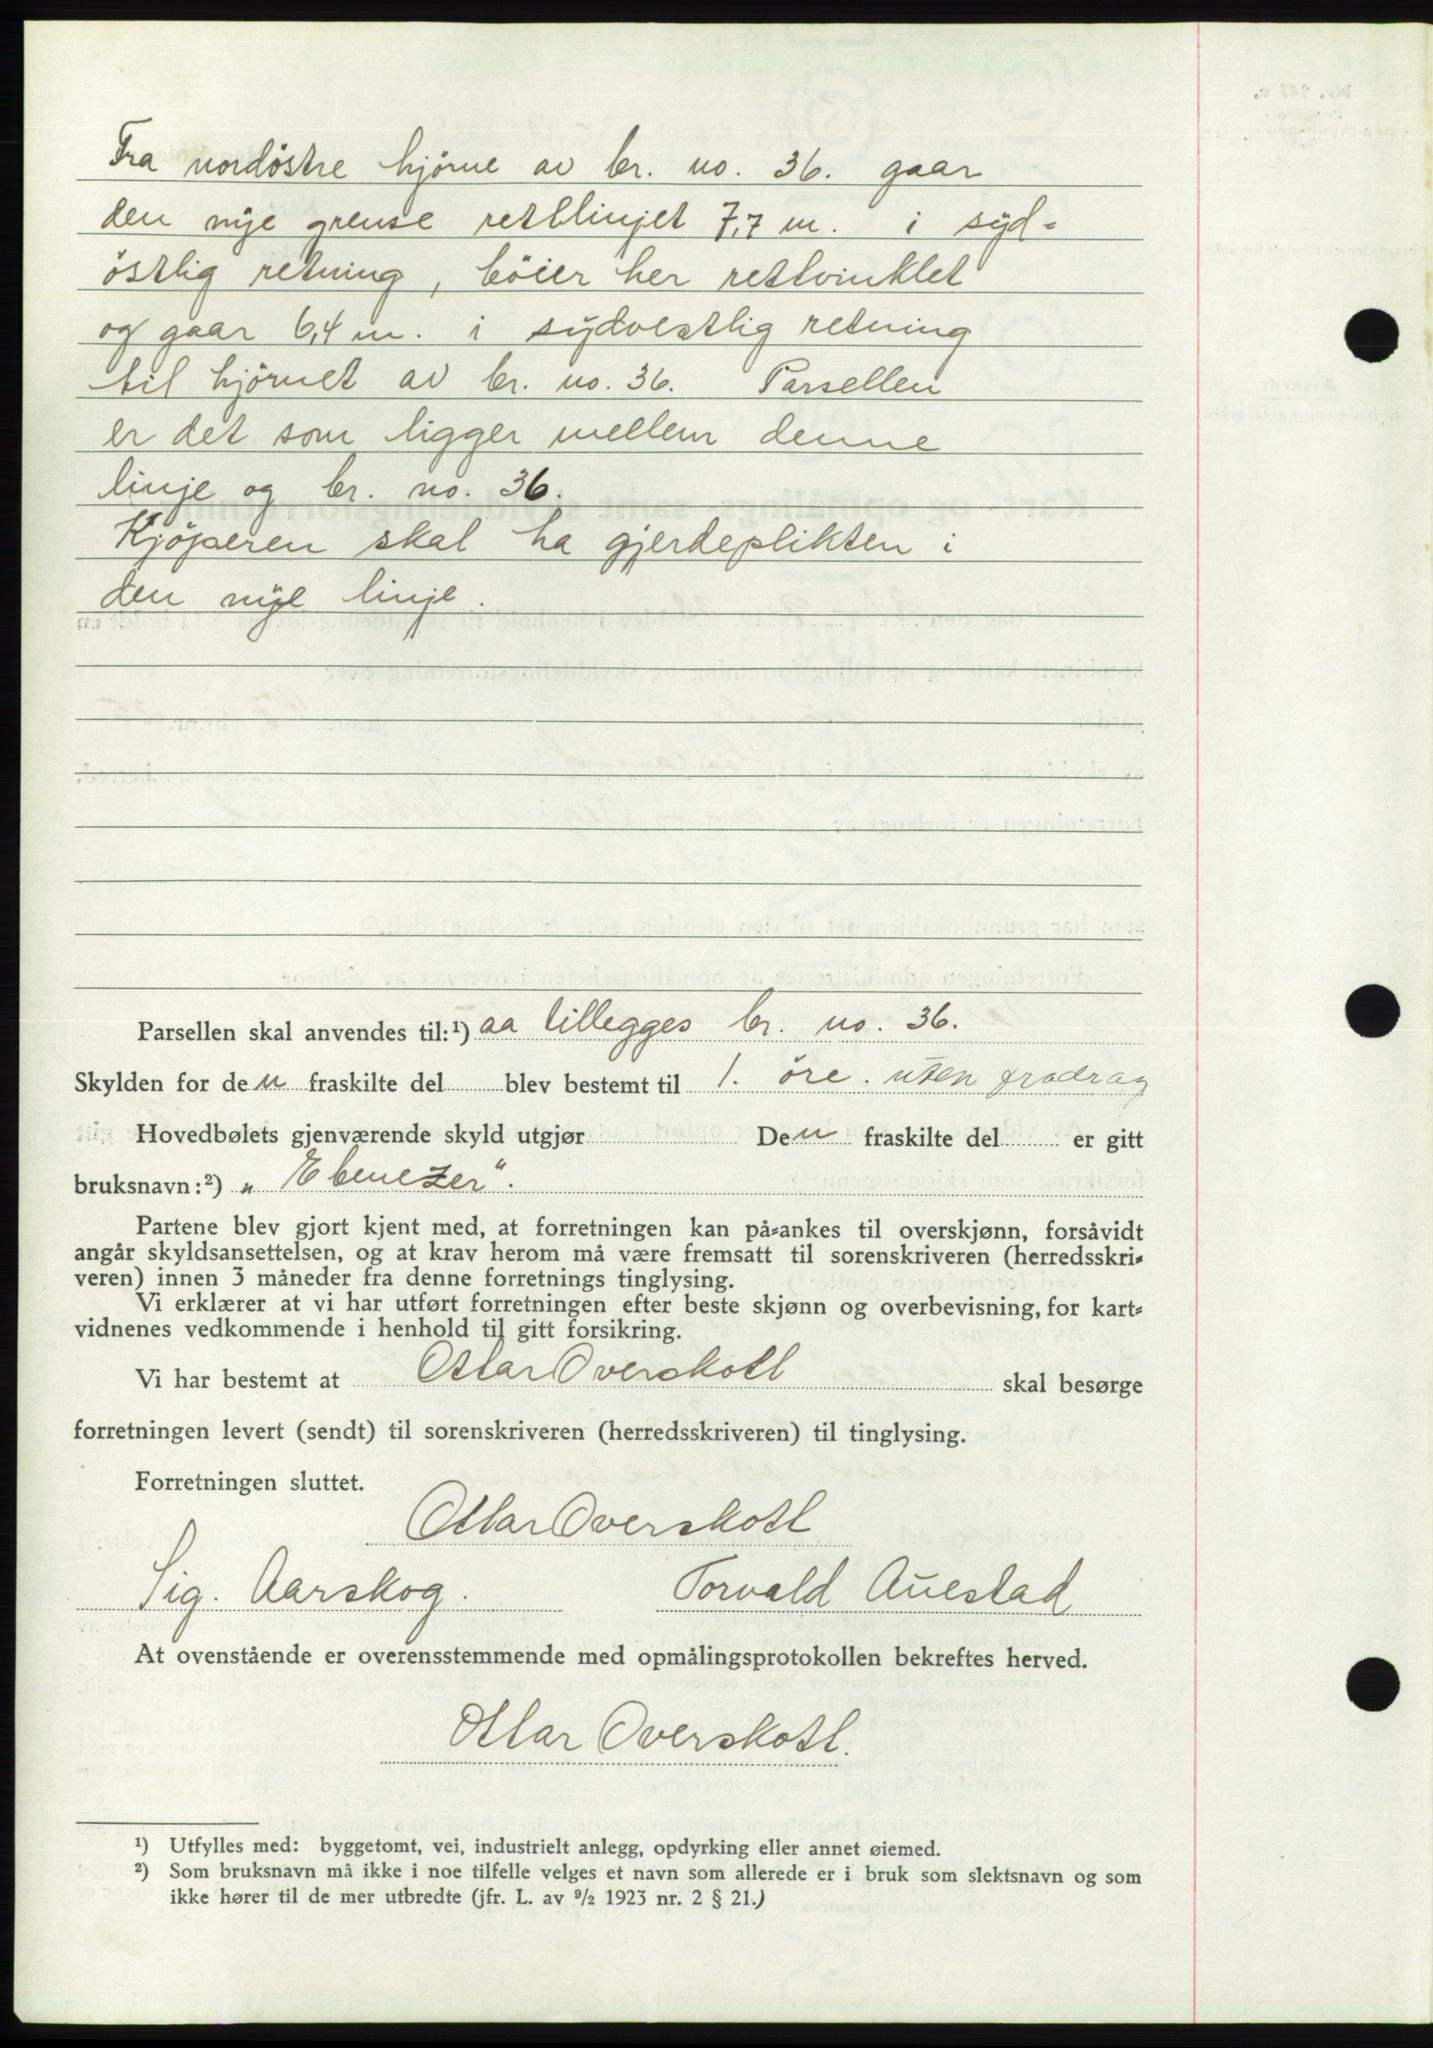 Fra nordöstre hjörne av br. no. 36. gaar
den nye grense retlinjet 7,7 m. i syd=
östlig retning, böier her retvinklet
og gaar 6,4 m. i sydvestlig retning
til hjörnet av br. no. 36. Parsellen
er det som ligger mellem denne
linje og br. no. 36.
Kjöperen skal ha gjerdeplikten i
den nye linje.
Parsellen skal anvendes til:¹) aa tillegges br. no. 36.
Skylden for den fraskilte del blev bestemt til 1. öre. uten fradrag
Hovedbølets gjenværende skyld utgjør Den fraskilte del er gitt
bruksnavn:²) „Ebenezer“.
Partene blev gjort kjent med, at forretningen kan på=ankes til overskjønn, forsåvidt
angår skyldsansettelsen, og at krav herom må være fremsatt til sorenskriveren (herredsskri=
veren) innen 3 måneder fra denne forretnings tinglysing.
Vi erklærer at vi har utført forretningen efter beste skjønn og overbevisning, for kart=
vidnenes vedkommende i henhold til gitt forsikring.
Vi har bestemt at Otlar Overskotl skal besørge
forretningen levert (sendt) til sorenskriveren (herredsskriveren) til tinglysing.
Forretningen sluttet.
Otlar Overskotl
Sig. Aarskog. Torvald Auestad
At ovenstående er overensstemmende med opmålingsprotokollen bekreftes herved.
Otlar Overskotl.
¹) Utfylles med: byggetomt, vei, industrielt anlegg, opdyrking eller annet øiemed.
²) Som bruksnavn må ikke i noe tilfelle velges et navn som allerede er i bruk som slektsnavn og som
ikke hører til de mer utbredte (jfr. L. av ⁹/₂ 1923 nr. 2 § 21.)